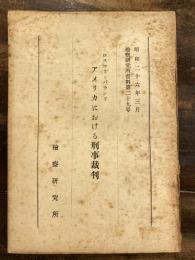 昭和二十六年三月
検察研究所資料第二十九号
ロスコウ・パウンド
アメリカにおける刑事裁判
検察研究所